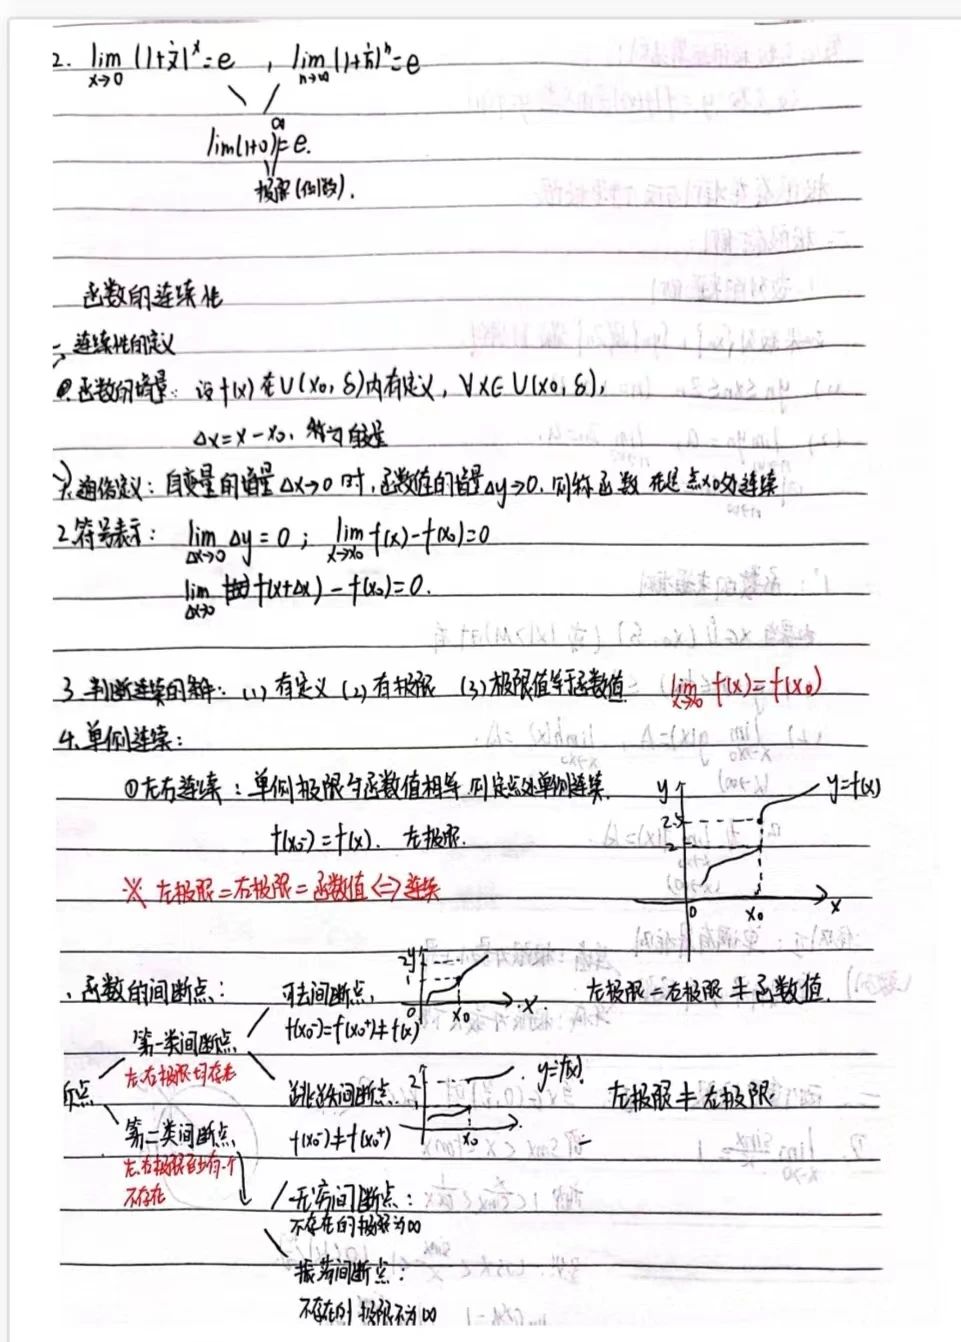 2. lim x→0 (1+x)^x = e , lim n→∞ (1+1/n)^n = e
lim(1+0)^∞ = e.
极限(倒数).
函数的连续性
一、连续性的定义
函数的增量: 设f(x)在U(x₀,δ)内有定义, ∀x∈U(x₀,δ),
Δx=x-x₀,
1.通俗定义: 自变量的增量Δx→0时,函数值的增量Δy→0.则称函数在点x₀处连续
2.符号表示: lim Δx→0 Δy=0 ; lim x→x₀ f(x)-f(x₀)=0
lim Δx→0 f(x+Δx)-f(x₀)=0.
3.判断连续的条件: (1)有定义 (2)有极限 (3)极限值等于函数值 lim x→x₀ f(x)=f(x₀)
4.单侧连续:
①左右连续: 单侧极限与函数值相等.则在点处单侧连续.
f(x₀⁻)=f(x). 左极限.
y 2.5 2 0 x₀ x y=f(x)
※ 左极限=右极限=函数值⇔连续
、函数的间断点: 可去间断点,
f(x₀⁻)=f(x₀⁺)≠f(x)
2 y 1 0 x₀ x
左极限=右极限≠函数值.
第一类间断点
左右极限均存在
跳跃间断点.
f(x₀⁻)≠f(x₀⁺)
2 1 x₀ y=f(x)
左极限≠右极限
断点
第二类间断点
左、右极限至少有一个
不存在
无穷间断点:
不存在的极限为∞
振荡间断点:
不存在的极限不为∞